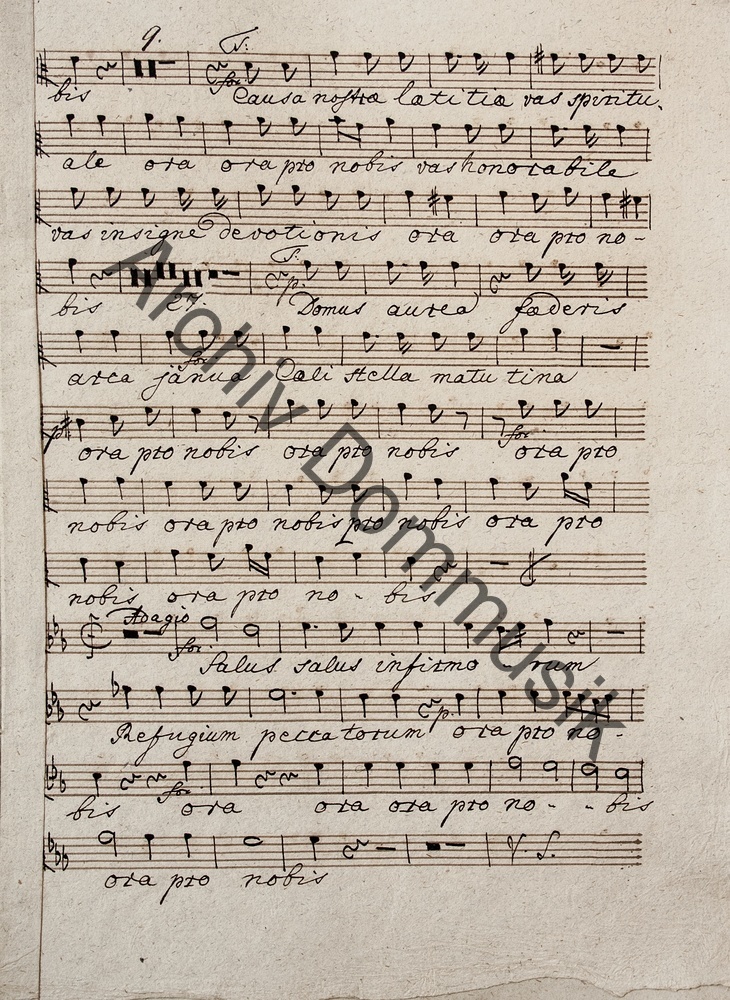 9. T:
bis for Causa nostræ lætitiæ vas spiritu,
ale ora ora pro nobis vas honorabile
vas insigne devotionis ora ora pro no-
T:
bis 27 p. Domus aurea fæderis
for
arca janua Cæli stella matutina
p for
ora pro nobis ora pro nobis ora pro
nobis ora pro nobis pro nobis ora pro
nobis ora pro no - bis
Adagio for
Salus salus infirmo - rum
p.
Refugium peccatorum ora pro no -
for
bis ora ora ora pro no - - bis
V. S.
ora pro nobis
Archiv Dommusik